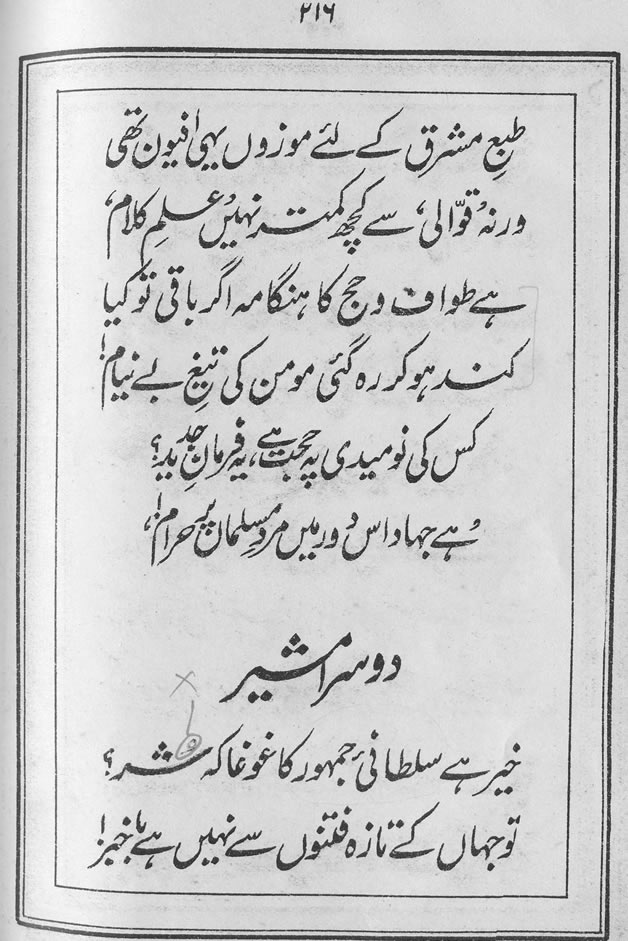 ۲۱۶
طبعِ مشرق کے لئے موزوں یہی افیون تھی
ورنہ ’قوّالی‘ سے کچھ کمتر نہیں ’علمِ کلام‘
ہے طواف و حج کا ہنگامہ اگر باقی تو کیا
کند ہو کر رہ گئی مومن کی تیغِ بے نیام!
کس کی نومیدی پہ حجت ہے یہ فرمانِ جدید؟
’ہے جہاد اس دور میں مردِ مسلماں پر حرام!‘
دوسرا مشیر
خیر ہے سلطانیٔ جمہور کا غوغا کہ شر؟
تو جہاں کے تازہ فتنوں سے نہیں ہے باخبر!